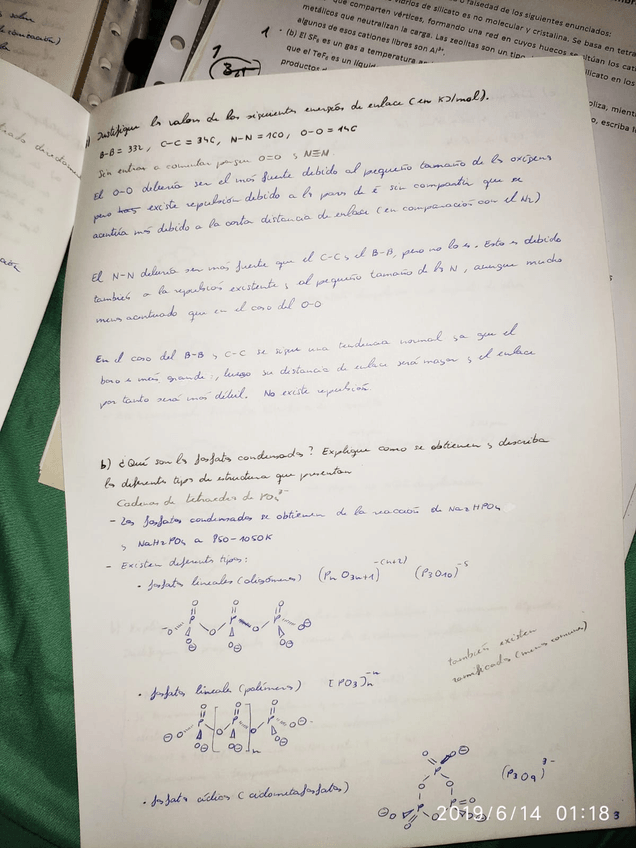 vidrios de silicato es no molecular y cristalina. Se basa en
que comparten vértices, formando una red en cuyos huecos se
metálicos que neutralizan la carga. Las zeolitas son un
algunos de esos cationes libres son Al³⁺.
(b) El SF₆ es un gas a temperatura
que el TeF₆ es un
Justifique los valores de las siguientes energías de enlace (en KJ/mol).
B-B = 332, C-C = 346, N-N = 160, O-O = 146
Sin entrar a comentar porque O=O y N≡N
El O-O debería ser el más fuerte debido al pequeño tamaño de los oxígenos
pero existe repulsión debido a los pares de ē sin compartir que se
acentúa más debido a la corta distancia de enlace (en comparación con el N₂)
El N-N debería ser más fuerte que el C-C y el B-B, pero no lo es. Esto es debido
también a la repulsión existente y al pequeño tamaño de los N, aunque mucho
menos acentuado que en el caso del O-O
En el caso del B-B y C-C se sigue una tendencia normal ya que el
boro es más grande, luego su distancia de enlace será mayor y el enlace
por tanto será más débil. No existe repulsión
b) ¿Qué son los fosfatos condensados? Explique como se obtienen y describa
los diferentes tipos de estructura que presentan
Cadenas de tetraedros de PO₄³⁻
- Los fosfatos condensados se obtienen de la reacción de Na₂HPO₄
y NaH₂PO₄ a 950-1050K
- Existen diferentes tipos:
· fosfatos lineales (oligómeros) (PnO3n+1)⁻⁽ⁿ⁺²⁾ (P₃O₁₀)⁻⁵
también existen
ramificados (menos comunes)
· fosfatos lineales (polímeros) [PO₃]n⁻ⁿ
· fosfatos cíclicos (ciclometafosfatos) (P₃O₉)³⁻
2019/6/14 01:18
3